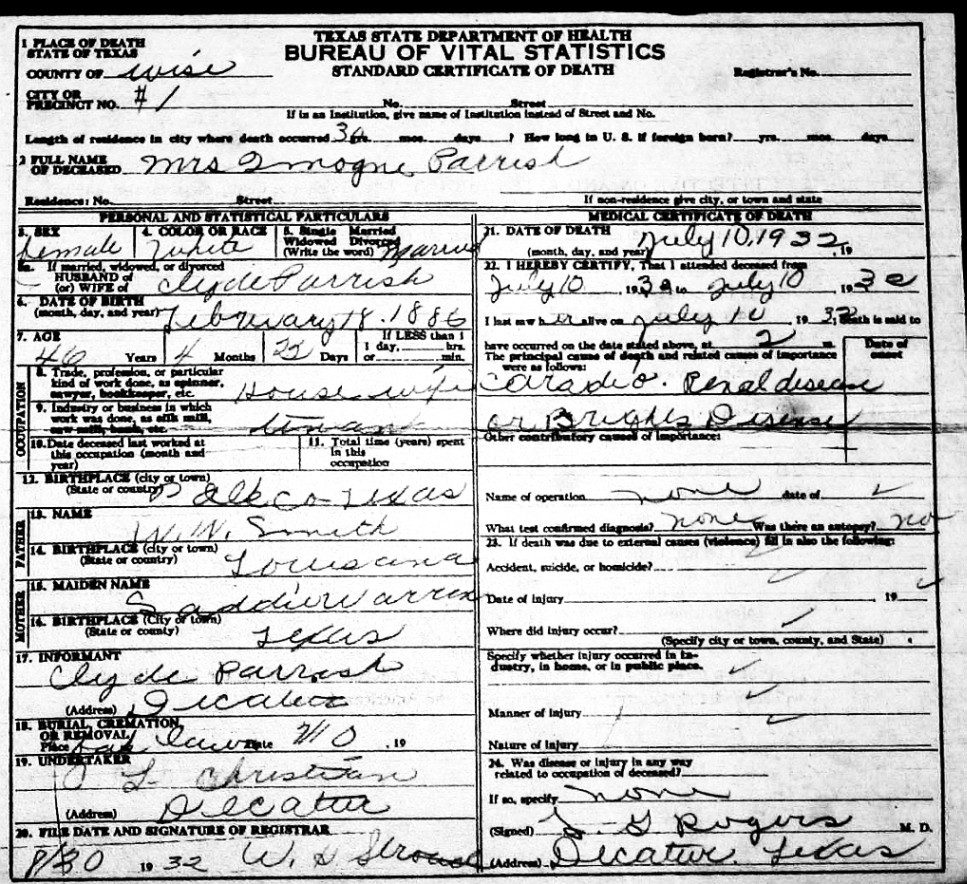 TEXAS STATE DEPARTMENT OF HEALTH
BUREAU OF VITAL STATISTICS
STANDARD CERTIFICATE OF DEATH
1 PLACE OF DEATH
STATE OF TEXAS
COUNTY OF Wise
Registrar's No.
CITY OR
PRECINCT NO. #1 No. Street
If in an Institution, give name of Institution instead of Street and No.
Length of residence in city where death occurred 30 yrs. mos. days ? How long in U. S. if foreign born? yrs. mos. days
2 FULL NAME
OF DECEASED Mrs Imogne Parrish
Residence: No. Street If non-residence give city, or town and state
PERSONAL AND STATISTICAL PARTICULARS
3. SEX
Female
4. COLOR OR RACE
White
5. Single Married
Widowed Divorced
(Write the word) Married
5a. If married, widowed, or divorced
HUSBAND of
(or) WIFE of Clyde Parrish
6. DATE OF BIRTH
(month, day, and year) February 18. 1886
7. AGE
46 Years 4 Months 22 Days
If LESS than 1
1 day, hrs.
or min.
OCCUPATION
8. Trade, profession, or particular
kind of work done, as spinner,
sawyer, bookkeeper, etc. House wife
9. Industry or business in which
work was done, as silk mill,
saw mill, bank, etc.
10. Date deceased last worked at
this occupation (month and
year)
11. Total time (years) spent
in this
occupation
12. BIRTHPLACE (city or town)
(State or country) Co Texas
FATHER
13. NAME
W. W. Smith
14. BIRTHPLACE (city or town)
(State or country) Louisana
MOTHER
15. MAIDEN NAME
Saddie Warren
16. BIRTHPLACE (City or town)
(State or county) Texas
17. INFORMANT
Clyde Parrish
(Address) Decatur
18. BURIAL, CREMATION,
OR REMOVAL
Place Oak Lawn Date 7/10 , 19
19. UNDERTAKER
L Christian
(Address) Decatur
20. FILE DATE AND SIGNATURE OF REGISTRAR
8/30 1932 W. H Stroud
MEDICAL CERTIFICATE OF DEATH
21. DATE OF DEATH
(month, day, and year) July 10, 1932, 19
22. I HEREBY CERTIFY, That I attended deceased from
July 10 , 1932 to July 10 , 1932
I last saw her alive on July 10 1932, death is said to
have occurred on the date stated above, at 2 m.
The principal cause of death and related causes of importance
were as follows:
Date of
onset
Caradio. Renal disease
or Brights Disease
Other contributory causes of importance:
Name of operation none date of ✓
What test confirmed diagnosis? none Was there an autopsy? no
23. If death was due to external causes (violence) fill in also the following:
Accident, suicide, or homicide? ✓
Date of injury , 19 ✓
Where did injury occur? ✓
(Specify city or town, county, and State)
Specify whether injury occurred in in-
dustry, in home, or in public place. ✓
Manner of injury ✓
Nature of injury ✓
24. Was disease or injury in any way
related to occupation of deceased?
If so, specify none
(Signed) L. G Rogers M. D.
(Address) Decatur. Texas